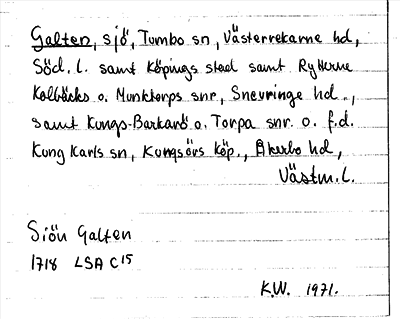 Galten, sjö, Tumbo sn, Västerrekarne hd,
Söd. l. samt Köpings stad samt Rytterne
Kolbäcks o. Munktorps snr, Snevringe hd.,
samt Kungs-Barkarö o. Torpa snr. o. f.d.
Kung Karls sn, Kungsörs köp., Åkerbo hd,
Västm. l.
Siön Galten
1718 LSA C15
K.W. 1971.